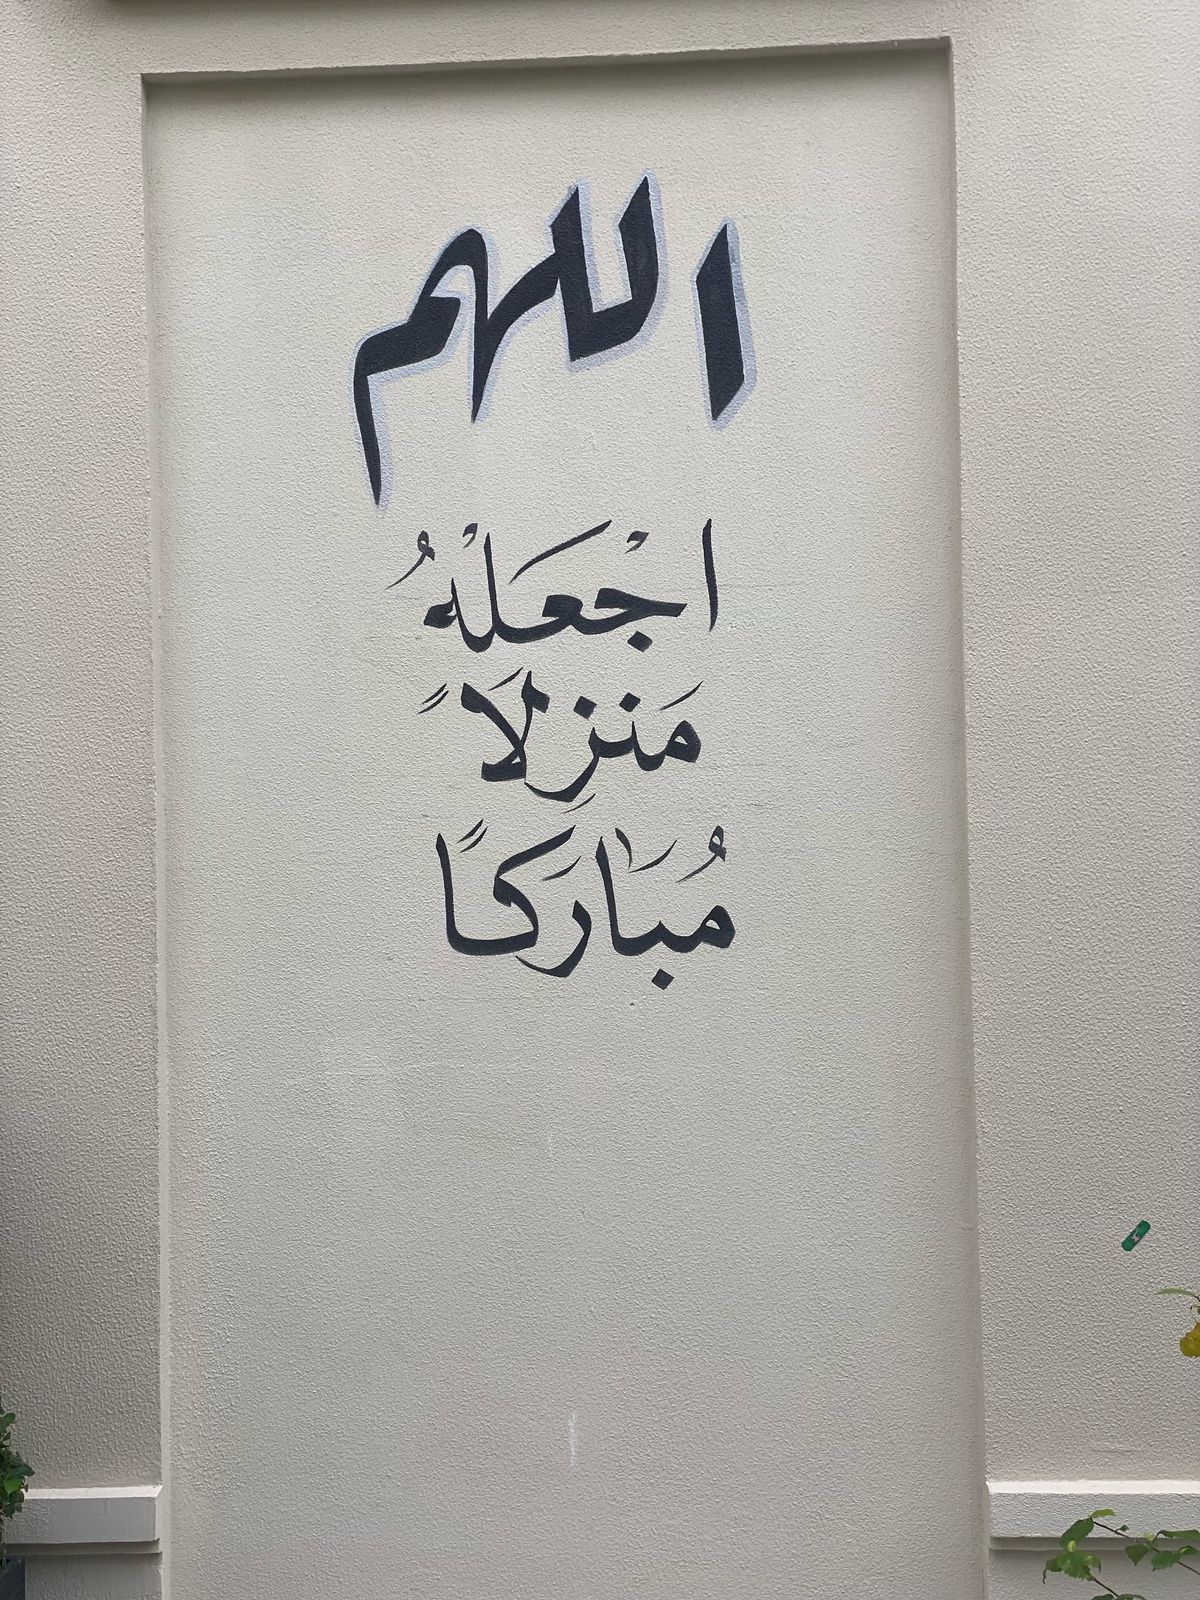 اللهم
اجْعَلْهُ
مَنزِلاً
مُبَارَكًا